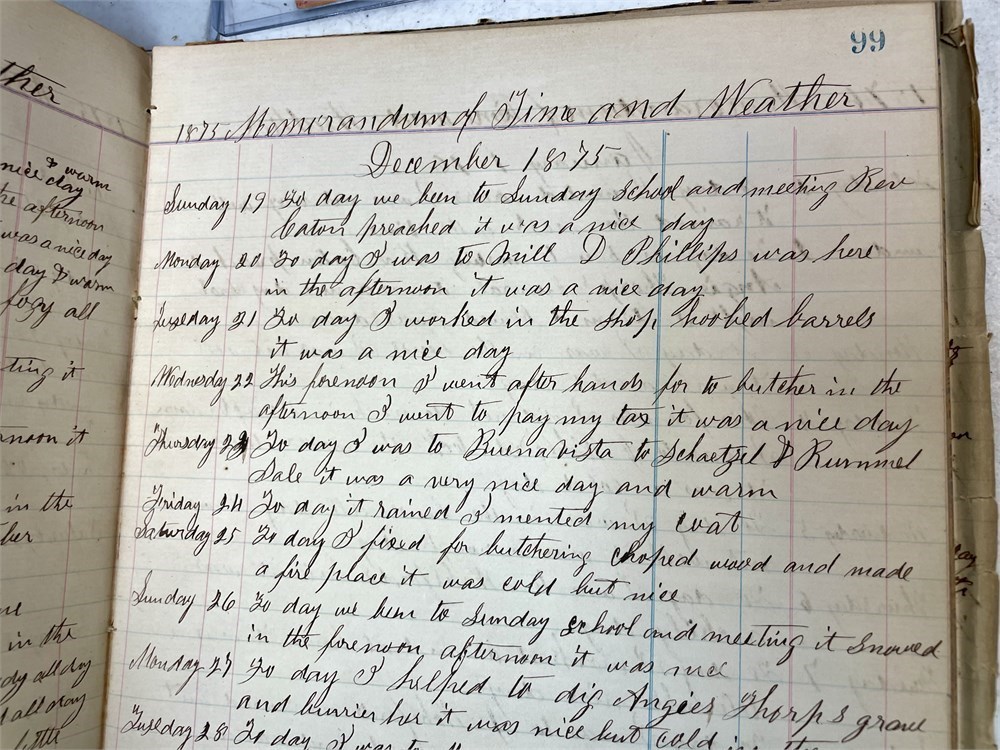 99
ther
1875 Memorandum of Time and Weather
December 1875
nice & warm
day
the afternoon
was a nice day
day & warm
fogy all
ting it
rnoon it
in the
ber
in the
dy all day
all day
Sunday 19 To day we been to Sunday school and meeting Rev
Eaton preached it was a nice day
Monday 20 To day I was to Mill D Phillips was here
in the afternoon it was a nice day
Tuseday 21 To day I worked in the shop hooped barrels
it was a nice day
Wednesday 22 This forenoon I went after hands for to butcher in the
afternoon I went to pay my tax it was a nice day
Thursday 23 To day I was to Buenavista to Schaetzel & Rummel
Sale it was a very nice day and warm
Friday 24 To day it rained I mented my coat
Saturday 25 To day I fixed for butchering choped wood and made
a fire place it was cold but nice
Sunday 26 To day we been to Sunday school and meeting it snowed
in the forenoon afternoon it was nice
Monday 27 To day I helped to dig Angies Thorps grave
and burrier her it was nice but cold
Tuseday 28 To day I was to